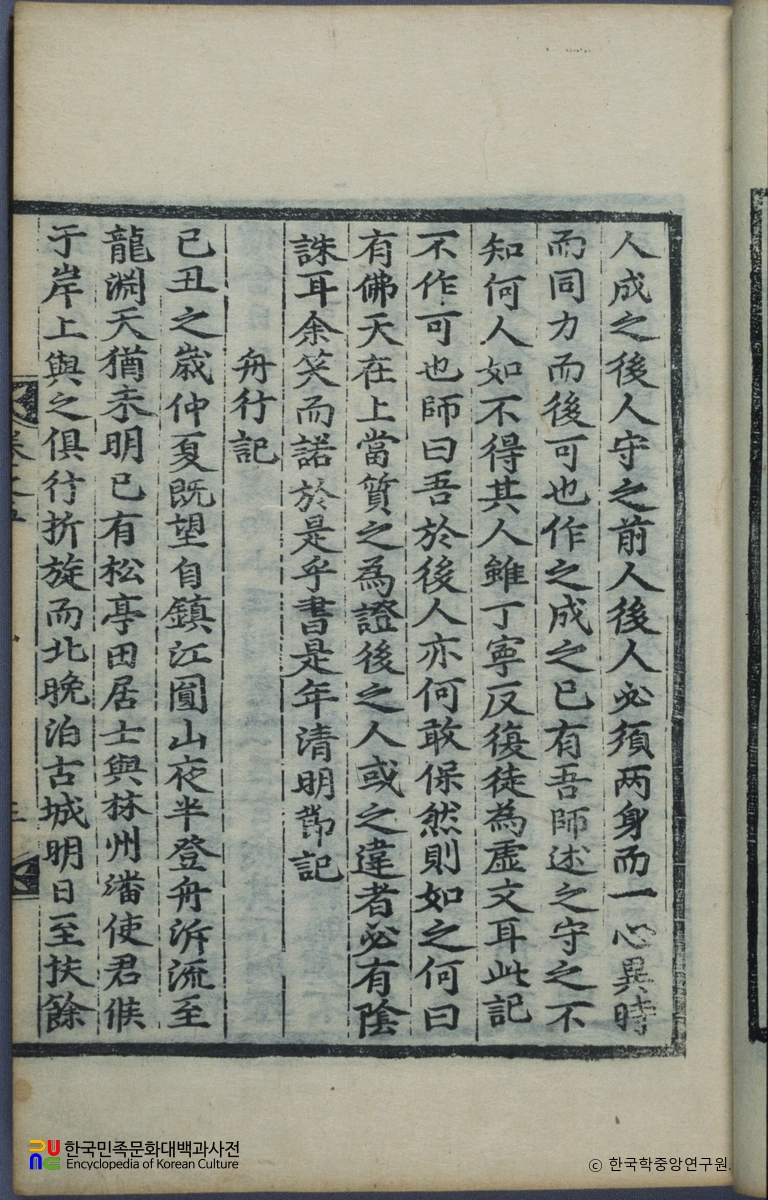 人成之後人守之前人後人必須两身而一心異時
而同力而後可也作之成之已有吾師述之守之不
知何人如不得其人雖丁寧反復徒為虛文耳此記
不作可也師曰吾於後人亦何敢保然則如之何曰
有佛天在上當質之為證後之人或之違者必有陰
誅耳余笑而諾於是乎書是年清明節記
舟行記
己丑之歲仲夏旣望自鎮江圎山夜半登舟泝流至
龍渊天猶未明已有松亭田居士與林州潘使君候
于岸上與之俱行折旋而北晚泊古城明日至扶餘
한국민족문화대백과사전
Encyclopedia of Korean Culture
© 한국학중앙연구원.